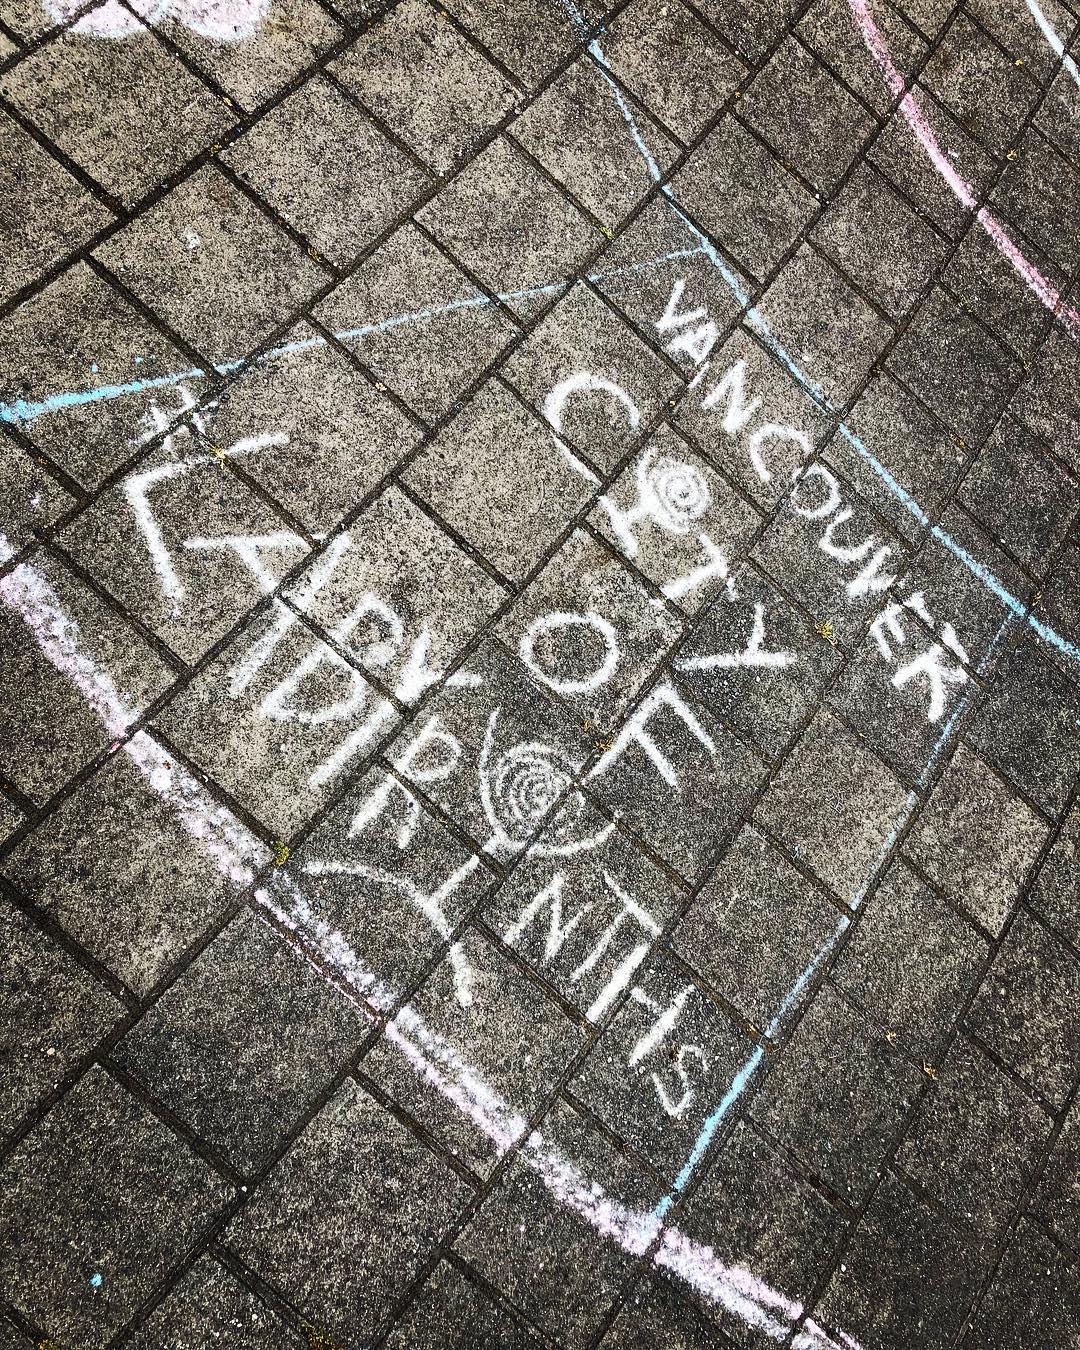 VANCOUVER
CITY
OF
#LABYRINTHS